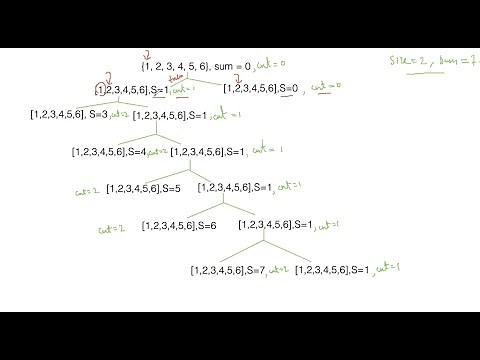 {1, 2, 3, 4, 5, 6}, sum = 0, cnt = 0 size = 2, sum = 7
[1,2,3,4,5,6],S=1, cnt = 1 [1,2,3,4,5,6],S=0, cnt = 0
[1,2,3,4,5,6], S=3, cnt=2 [1,2,3,4,5,6],S=1, cnt = 1
[1,2,3,4,5,6],S=4, cnt=2 [1,2,3,4,5,6],S=1, cnt = 1
cnt = 2 [1,2,3,4,5,6],S=5 [1,2,3,4,5,6],S=1, cnt=1
cnt = 2 [1,2,3,4,5,6],S=6 [1,2,3,4,5,6],S=1, cnt=1
[1,2,3,4,5,6],S=7, cnt=2 [1,2,3,4,5,6],S=1, cnt=1